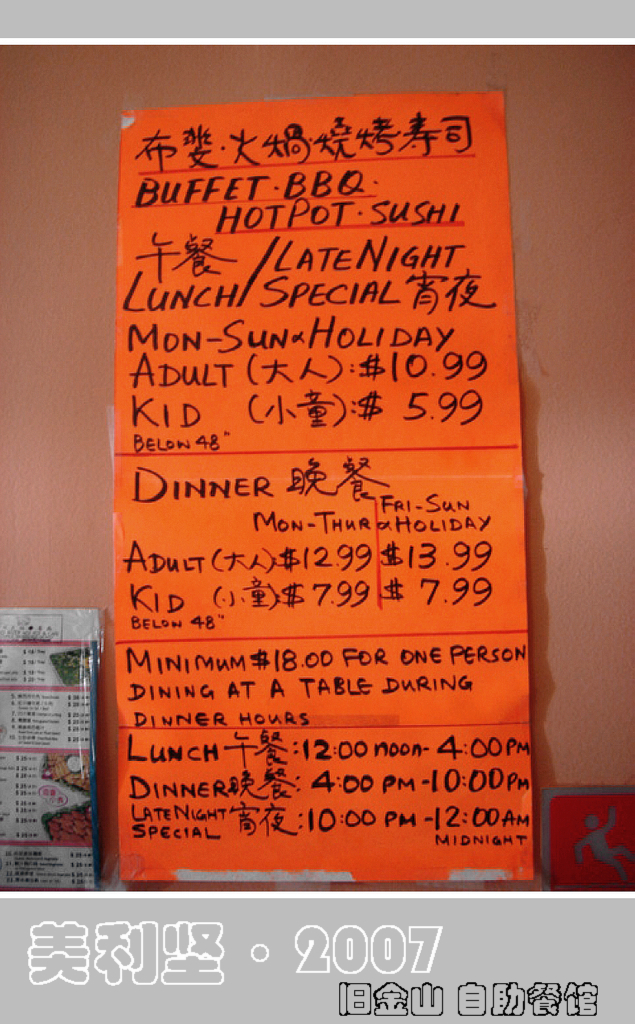 布斐·火鍋·燒烤·寿司
BUFFET·BBQ·
HOTPOT·SUSHI
午餐/LATENIGHT
LUNCH/SPECIAL 宵夜
MON-SUN & HOLIDAY
ADULT (大人):$10.99
KID (小童):$ 5.99
BELOW 48"
DINNER 晚餐
MON-THUR FRI-SUN & HOLIDAY
ADULT (大人):$12.99 $13.99
KID (小童):$ 7.99 $ 7.99
BELOW 48"
MINIMUM $18.00 FOR ONE PERSON
DINING AT A TABLE DURING
DINNER HOURS
LUNCH 午餐:12:00 NOON- 4:00 PM
DINNER 晚餐: 4:00 PM -10:00 PM
LATE NIGHT SPECIAL 宵夜:10:00 PM -12:00 AM
MIDNIGHT
美利坚·2007
旧金山 自助餐馆